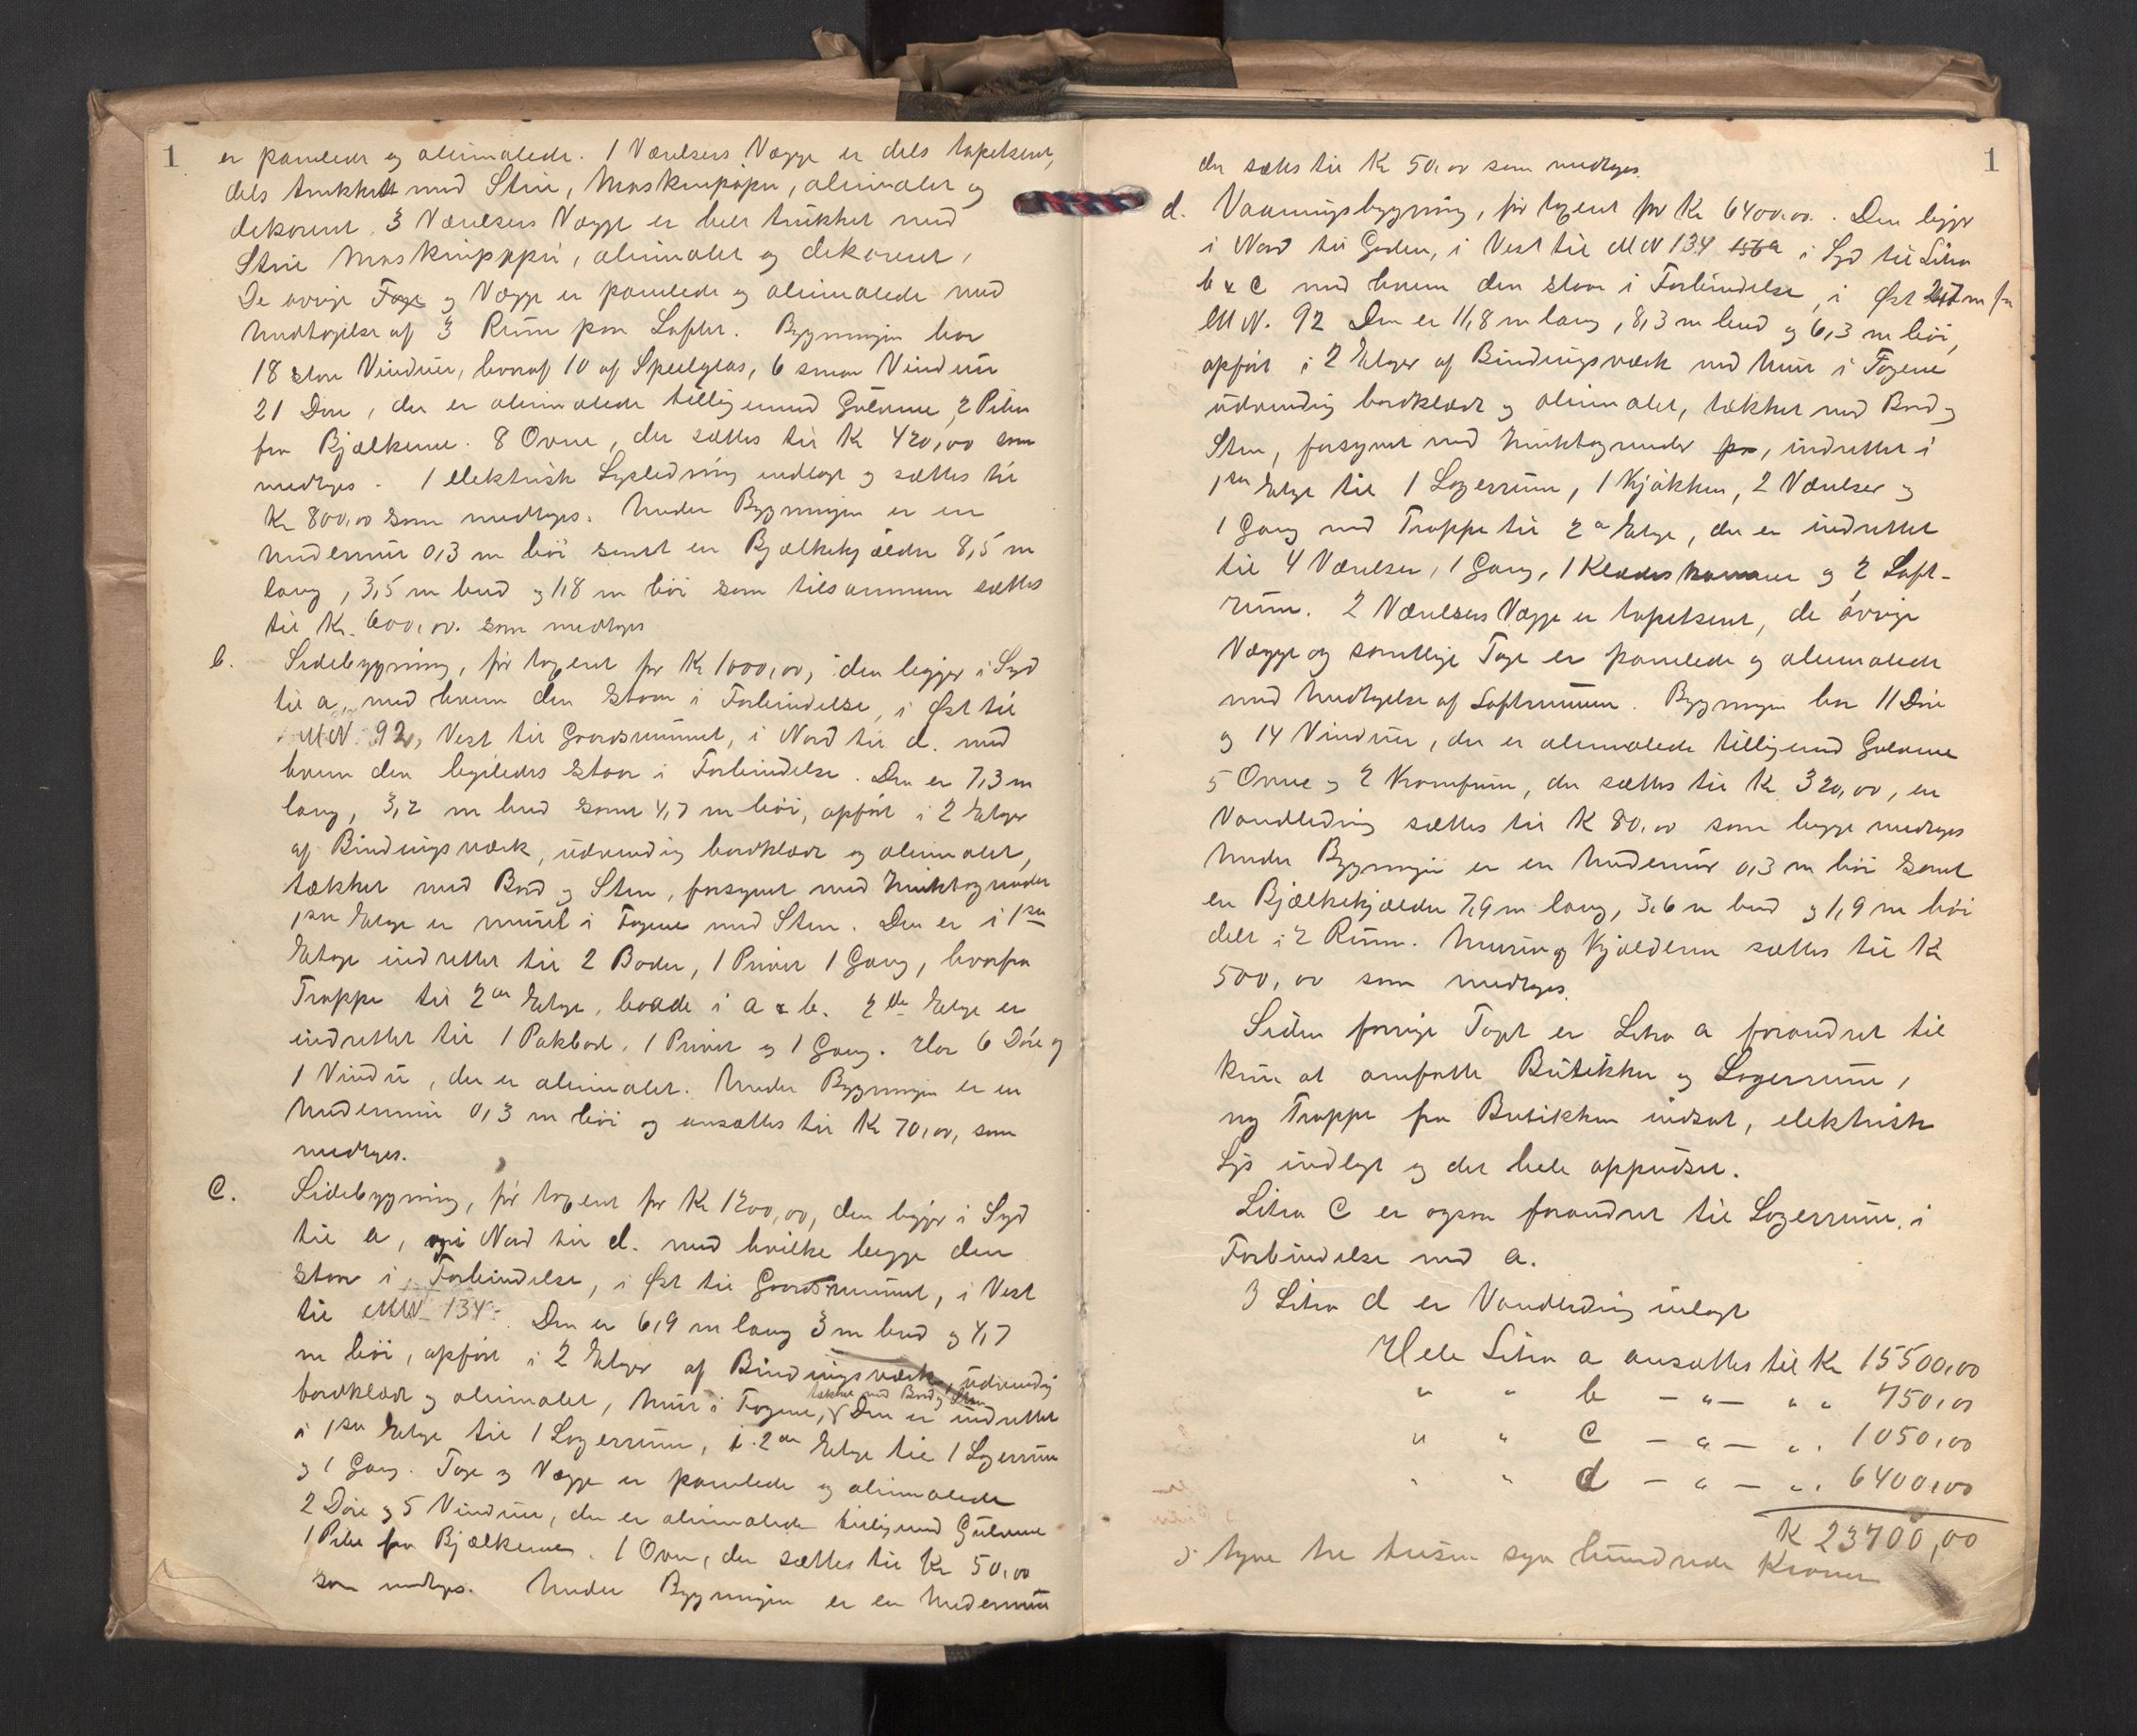 1
er panelede og oliemalede. 1 Værelsers Vægge er dels tapetseret,
dels trukket med Strie, Maskinpapir, oliemalet og
dekoreret. 3 Værelsers Vægge er helt trukket med
Strie Maskinpapir, oliemalet og dekoreret,
De øvrige Tage og Vægge er panelede og oliemalede med
Undtagelse af 3 Rum paa Loftet. Bygningen har
18 store Vinduer, hvoraf 10 af Speilglas, 6 smaa Vinduer
21 Døre, der er oliemalede tilligemed Gulvene, 2 Piber
fra Bjælkerne. 8 Ovne, der sættes til Kr 420,00 som
medtages. 1 elektrisk Lysledning indlagt og sættes til
Kr 800,00 som medtages. Under Bygningen er en
Undermur 0,3 m høi samt en Bjælkekjælder 8,5 m
lang, 3,5 m bred og 1,8 m høi som tilsammen sættes
til Kr. 600,00. som medtages
b. Sidebygning, før taxeret for Kr 1000,00, den ligger i Syd
til a, med hvem den staar i Forbindelse, i Øst til
MN. 92, Vest til Gaardsrummet, i Nord til d. med
hvem den ligeledes staar i Forbindelse. Den er 7,3 m
lang, 3,2 m bred samt 4,7 m høi, opført i 2 Etager
af Bindingsværk, udvendig bordklædt og oliemalet,
tækket med Bord og Sten, forsynet med Zinktagrender
1ste Etage er muret i Fagene med Sten. Den er i 1ste
Etage indrettet til 2 Boder, 1 Privet 1 Gang, hvorfra
Trappe til 2den Etage, baade i a & b. 2de Etage er
indrettet til 1 Pakbod, 1 Privet og 1 Gang. Har 6 Døre og
1 Vindu, der er oliemalet. Under Bygningen er en
Undermur 0,3 m høi og ansættes til Kr 70,00, som
medtages.
c. Sidebygning, før taxeret for Kr 1200,00, den ligger i Syd
til a, og i Nord til d. med hvilke begge den
staar i Forbindelse, i Øst til Gaardsrummet, i Vest
til MN 134. Den er 6,9 m lang 3 m bred og 4,7
m høi, opført i 2 Etager af Bindingsværk, udvendig
tækket med Bord og Sten
bordklædt og oliemalet, Mur i Fagene, Den er indrettet
i 1ste Etage til 1 Lagerrum, i 2den Etage til 1 Lagerrum
og 1 Gang. Tage og Vægge er panelede og oliemalede
2 Døre og 5 Vinduer, der er oliemalede tilligemed Gulvene
1 Pibe fra Bjælkerne. 1 Ovn, der sættes til Kr 50,00
som medtages. Under Bygningen er en Undermur
1
der sættes til Kr 50,00 som medtages.
d. Vaaningsbygning, før taxeret for Kr 6400,00. Den ligger
i Nord til Gaden, i Vest til MN 134 i Syd til Litra
b & c med hvem den staar i Forbindelse, i Øst m fra
MN. 92 Den er 11,8 m lang, 8,3 m bred og 6,3 m høi,
opført i 2 Etager af Bindingsværk med Mur i Fagene
udvendig bordklædt og oliemalet, tækket med Bord og
Sten, forsynet med Zinktagrender, indrettet i
1ste Etage til 1 Lagerrum, 1 Kjøkken, 2 Værelser og
1 Gang med Trappe til 2a Etage, der er indrettet
til 4 Værelser, 1 Gang, 1 Klædeskammer og 2 Loft-
rum. 2 Værelsers Vægge er tapetseret, de øvrige
Vægge og samtlige Tage er panelede og oliemalede
med Undtagelse af Loftrummene. Bygningen har 11 Døre
og 14 Vinduer, der er oliemalede tilligemed Gulvene
5 Ovne og 2 Komfurer, der sættes til Kr 320,00, en
Vandledning sættes til K 80,00 som begge medtages
Under Bygningen er en Undermur 0,3 m høi samt
en Bjælkekjælder 7,9 m lang, 3,6 m bred og 1,9 m høi
delt i 2 Rum. Muren og Kjælderen sættes til Kr
500,00 som medtages.
Siden forrige Taxt er Litra a forandret til
kun at omfatte Butikker og Lagerrum,
ny Trappe fra Butikken indsat, elektrisk
Lys indlagt og det hele oppudset.
Litra C er ogsaa forandret til Lagerrum, i
Forbindelse med a.
I Litra d er Vandledning indlagt
Hele Litra a ansættes til Kr 15500,00
" " b — " — " " 750,00
" " c — " — " " 1050,00
" " d — " — " " 6400,00
K 23700,00
tyve tre tusen syv hundrede Kroner